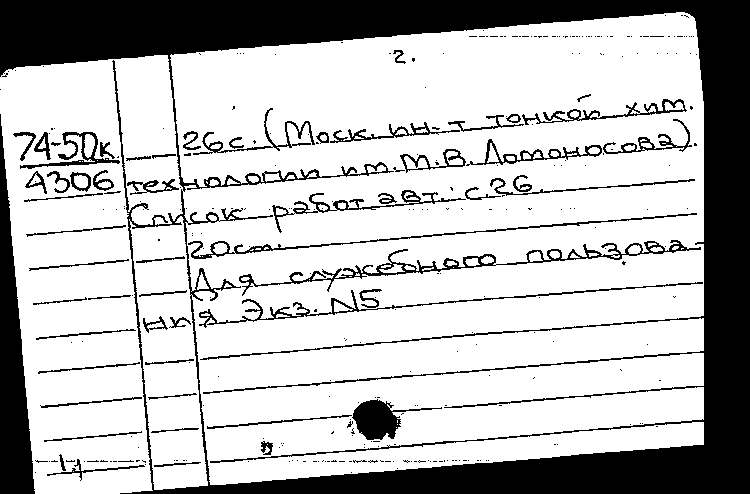 2.
74-50к 26с. (Моск. ин-т тонкой хим.
4306 технологии им. М.В. Ломоносова).
Список работ авт.: с.26.
20см.
Для служебного пользова-
ния. Экз. N5.